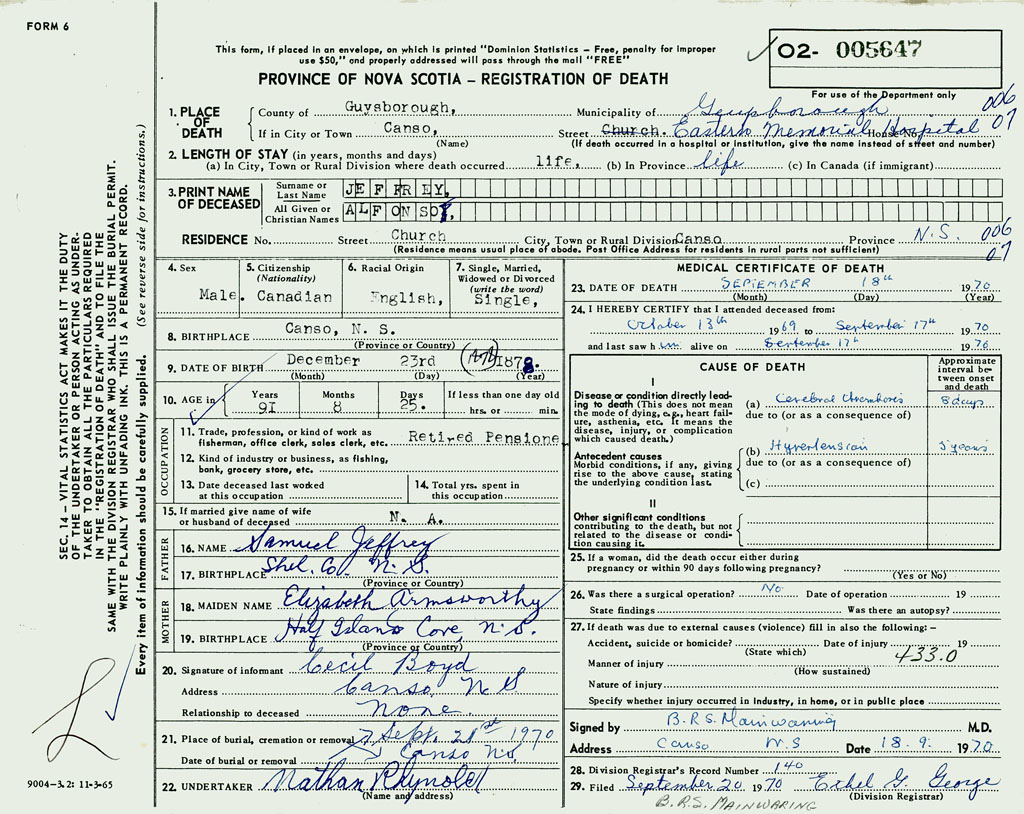 FORM 6
This form, if placed in an envelope, on which is printed "Dominion Statistics – Free, penalty for improper
use $50," and properly addressed will pass through the mail "FREE"
PROVINCE OF NOVA SCOTIA – REGISTRATION OF DEATH
O2- 005647
For use of the Department only
1. PLACE OF DEATH
County of Guysborough, Municipality of Guysborough 006
If in City or Town Canso, Street Church. Eastern Memorial Hospital House No. 07
(Name) (If death occurred in a hospital or institution, give the name instead of street and number)
2. LENGTH OF STAY (in years, months and days)
(a) In City, Town or Rural Division where death occurred life, (b) In Province life (c) In Canada (if immigrant)
3. PRINT NAME OF DECEASED
Surname or Last Name JEFFREY,
All Given or Christian Names ALFONSO,
RESIDENCE No. Street Church City, Town or Rural Division Canso Province N.S. 006
07
(Residence means usual place of abode. Post Office Address for residents in rural parts not sufficient)
4. Sex 5. Citizenship (Nationality) 6. Racial Origin 7. Single, Married, Widowed or Divorced (write the word)
Male. Canadian English, Single,
8. BIRTHPLACE Canso, N. S.
(Province or Country)
9. DATE OF BIRTH December 23rd 1878.
(Month) (Day) (Year)
10. AGE in Years Months Days If less than one day old
91 8 25. hrs. or min.
OCCUPATION
11. Trade, profession, or kind of work as
fisherman, office clerk, sales clerk, etc. Retired Pensione
12. Kind of industry or business, as fishing,
bank, grocery store, etc.
13. Date deceased last worked
at this occupation
14. Total yrs. spent in
this occupation
15. If married give name of wife
or husband of deceased N. A.
FATHER
16. NAME Samuel Jeffrey
17. BIRTHPLACE Shel. Co. N. S.
(Province or Country)
MOTHER
18. MAIDEN NAME Elizabeth Armsworthy
19. BIRTHPLACE Half Island Cove, N. S.
(Province or Country)
20. Signature of informant Cecil Boyd
Address Canso N. S
Relationship to deceased none
21. Place of burial, cremation or removal Sept. 21st 1970
Date of burial or removal Canso N.S.
22. UNDERTAKER Nathan
(Name and address)
MEDICAL CERTIFICATE OF DEATH
23. DATE OF DEATH SEPTEMBER 18th 1970
(Month) (Day) (Year)
24. I HEREBY CERTIFY that I attended deceased from:
October 13th 1969 to September 17th 1970
and last saw him alive on September 17th 1970
CAUSE OF DEATH
Approximate interval between onset and death
I
Disease or condition directly leading to death (This does not mean the mode of dying, e.g., heart failure, asthenia, etc. It means the disease, injury, or complication which caused death.)
(a) Cerebral thrombosis 8 days
due to (or as a consequence of)
Antecedent causes
Morbid conditions, if any, giving rise to the above cause, stating the underlying condition last.
(b) Hypertension years
due to (or as a consequence of)
(c)
II
Other significant conditions
contributing to the death, but not related to the disease or condition causing it.
25. If a woman, did the death occur either during
pregnancy or within 90 days following pregnancy?
(Yes or No)
26. Was there a surgical operation? No Date of operation 19
State findings Was there an autopsy?
27. If death was due to external causes (violence) fill in also the following: –
Accident, suicide or homicide? Date of injury 19
(State which) 433.0
Manner of injury
(How sustained)
Nature of injury
Specify whether injury occurred in Industry, in home, or in public place
Signed by B.R.S. Mainwaring M.D.
Address Canso N.S Date 18. 9. 1970
28. Division Registrar's Record Number 140
29. Filed September 20 1970 Ethel G. George
(Division Registrar)
B.R.S. MAINWARING
SEC. 14 – VITAL STATISTICS ACT MAKES IT THE DUTY
OF THE UNDERTAKER OR PERSON ACTING AS UNDER-
TAKER TO OBTAIN ALL THE PARTICULARS REQUIRED
IN THE "REGISTRATION OF DEATH" AND TO FILE THE
SAME WITH THE DIVISION REGISTRAR WHO SHALL ISSUE THE BURIAL PERMIT.
WRITE PLAINLY WITH UNFADING INK. THIS IS A PERMANENT RECORD.
Every item of information should be carefully supplied. (See reverse side for instructions.)
9004–3.2: 11-3-65